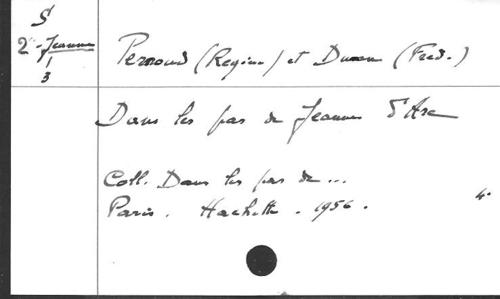 S
2 - Jeanne
1
3
Pernoud (Regine) et Duran (Fred.)
Dans les pas de Jeanne d'Arc
Coll. Dans les pas de ...
Paris. Hachette. 1956.
4°